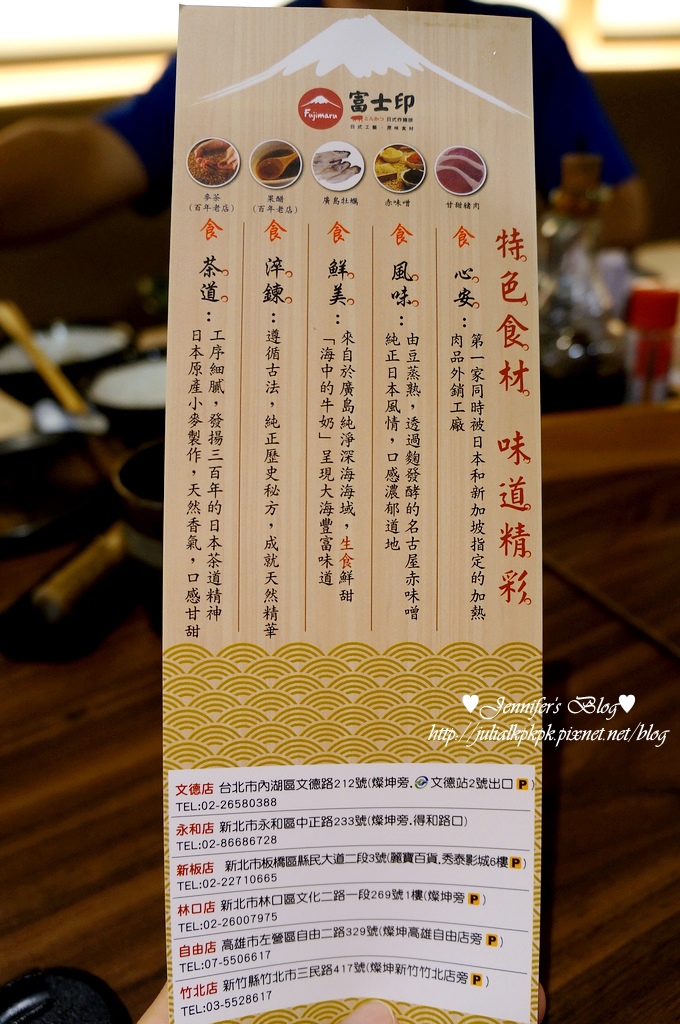 Fujimaru
富士印
とんかつ 日式炸豬排
日式工藝·原味食材
麥茶
(百年老店)
果醋
(百年老店)
廣島牡蠣
赤味噌
甘甜豬肉
特色食材 味道精彩
食
心安：
第一家同時被日本和新加坡指定的加熱
肉品外銷工廠
食
風味：
由豆蒸熟，透過麴發酵的名古屋赤味噌
純正日本風情，口感濃郁道地
食
鮮美：
來自於廣島純淨深海海域，生食鮮甜
「海中的牛奶」呈現大海豐富味道
食
淬鍊：
遵循古法，純正歷史秘方，成就天然精華
食
茶道：
工序細膩，發揚三百年的日本茶道精神
日本原產小麥製作，天然香氣，口感甘甜
♥Jennifer's Blog♥
http://julialkpkpk.pixnet.net/blog
文德店 台北市內湖區文德路212號(燦坤旁.文德站2號出口 P)
TEL:02-26580388
永和店 新北市永和區中正路233號(燦坤旁.得和路口)
TEL:02-86686728
新板店 新北市板橋區縣民大道二段3號(麗寶百貨.秀泰影城6樓 P)
TEL:02-22710665
林口店 新北市林口區文化二路一段269號1樓(燦坤旁 P)
TEL:02-26007975
自由店 高雄市左營區自由二路329號(燦坤高雄自由店旁 P)
TEL:07-5506617
竹北店 新竹縣竹北市三民路417號(燦坤新竹竹北店旁 P)
TEL:03-5528617